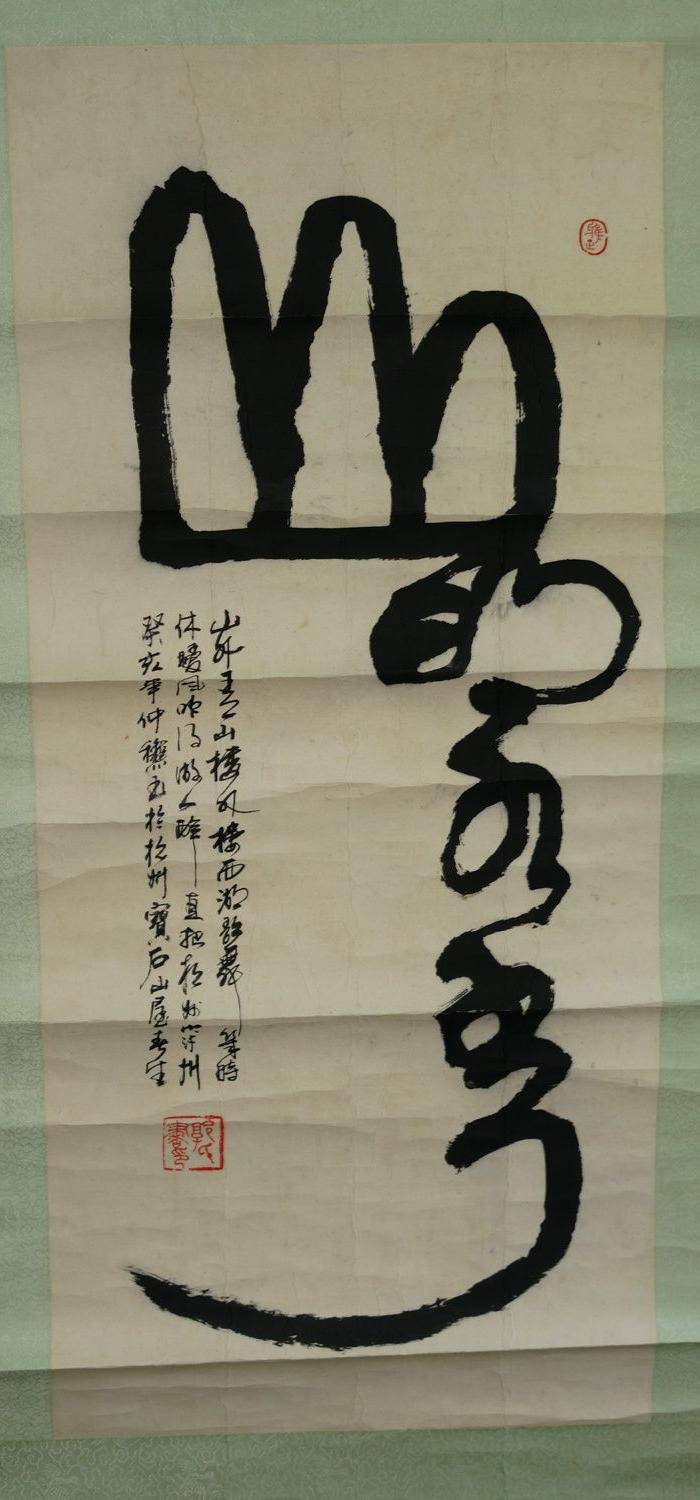 山明水秀
山外青山樓外樓西湖歌舞幾時
休暖風吹得遊人醉直把杭州作汴州
癸亥年仲龝書於杭州寶石山屋春生